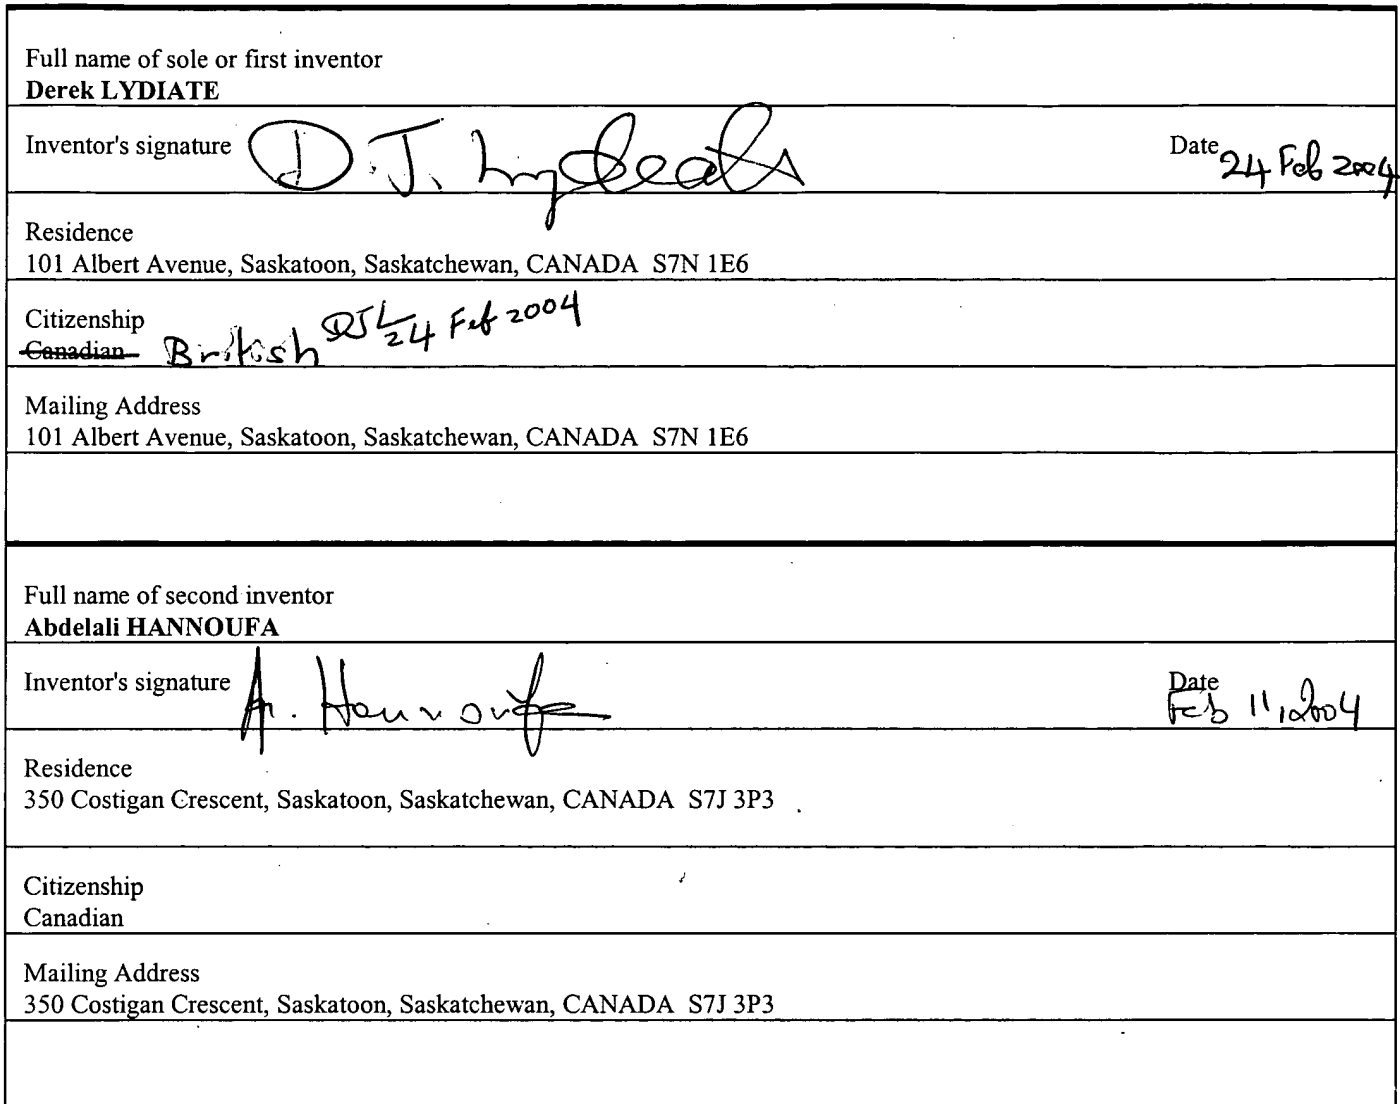 Full name of sole or first inventor
Derek LYDIATE
Inventor's signature D.J. Lydiate Date 24 Feb 2004
Residence
101 Albert Avenue, Saskatoon, Saskatchewan, CANADA S7N 1E6
Citizenship
Canadian British DJL 24 Feb 2004
Mailing Address
101 Albert Avenue, Saskatoon, Saskatchewan, CANADA S7N 1E6
Full name of second inventor
Abdelali HANNOUFA
Inventor's signature A. Hannoufa Date Feb 11, 2004
Residence
350 Costigan Crescent, Saskatoon, Saskatchewan, CANADA S7J 3P3
Citizenship
Canadian
Mailing Address
350 Costigan Crescent, Saskatoon, Saskatchewan, CANADA S7J 3P3